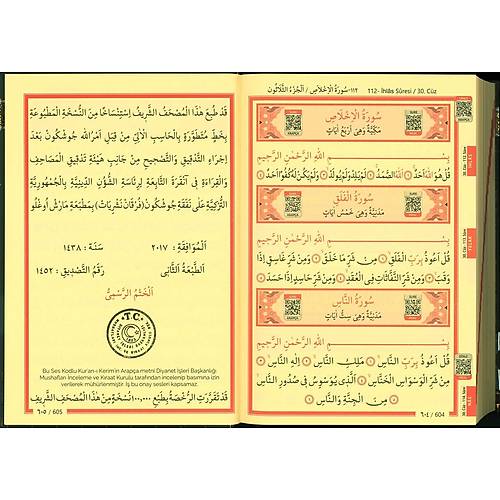 ١١٢-سُورَةُ الْإِخْلَاصِ / اَلْجُزْءُ الثَّلَاثُونَ
112- İhlâs Sûresi / 30. Cüz
سُورَةُ الْإِخْلَاصِ
مَكِّيَّةٌ وَهِيَ أَرْبَعُ اٰيَاتٍ
بِسْمِ اللّٰهِ الرَّحْمٰنِ الرَّحِيمِ
قُلْ هُوَ اللّٰهُ اَحَدٌ اَللّٰهُ الصَّمَدُ لَمْ يَلِدْ وَلَمْ يُولَدْ وَلَمْ يَكُنْ لَهُ كُفُوًا اَحَدٌ
سُورَةُ الْفَلَقِ
مَدَنِيَّةٌ وَهِيَ خَمْسُ اٰيَاتٍ
بِسْمِ اللّٰهِ الرَّحْمٰنِ الرَّحِيمِ
قُلْ اَعُوذُ بِرَبِّ الْفَلَقِ مِنْ شَرِّ مَا خَلَقَ وَمِنْ شَرِّ غَاسِقٍ اِذَا
وَقَبَ وَمِنْ شَرِّ النَّفَّاثَاتِ فِي الْعُقَدِ وَمِنْ شَرِّ حَاسِدٍ اِذَا حَسَدَ
سُورَةُ النَّاسِ
مَدَنِيَّةٌ وَهِيَ سِتُّ اٰيَاتٍ
بِسْمِ اللّٰهِ الرَّحْمٰنِ الرَّحِيمِ
قُلْ اَعُوذُ بِرَبِّ النَّاسِ مَلِكِ النَّاسِ اِلٰهِ النَّاسِ
مِنْ شَرِّ الْوَسْوَاسِ الْخَنَّاسِ اَلَّذِي يُوَسْوِسُ فِي صُدُورِ النَّاسِ
مِنَ الْجِنَّةِ وَالنَّاسِ
٦٠٤ / 604
قَدْ طُبِعَ هٰذَا الْمُصْحَفُ الشَّرِيفُ اِسْتِنْسَاخًا مِنَ النُّسْخَةِ الْمَطْبُوعَةِ
بِخَطٍّ مُتَطَوِّرَةٍ بِالْحَاسِبِ الْاٰلِيِّ مِنْ قِبَلِ اَمْرُاللّٰهِ جُوشْكُونْ بَعْدَ
اِجْرَاءِ التَّدْقِيقِ وَالتَّصْحِيحِ مِنْ جَانِبِ هَيْئَةِ تَدْقِيقِ الْمَصَاحِفِ
وَالْقِرَاءَةِ فِي اَنْقَرَةَ التَّابِعَةِ لِرِئَاسَةِ الشُّؤُونِ الدِّينِيَّةِ بِالْجُمْهُورِيَّةِ
التُّرْكِيَّةِ عَلَى نَفَقَةِ جُوشْكُونْ (فُرْقَانْ نَشْرِيَاتْ) بِمَطْبَعَةِ مَارْشْ اُوغْلُو
اَلْمُوَافِقَةُ : ٢٠١٧ سَنَةُ : ١٤٣٨
اَلطَّبْعَةُ الثَّانِي رَقْمُ التَّصْدِيقِ : ١٤٥٢
اَلْخَتْمُ الرَّسْمِيُّ
T.C.
Bu Ses Kodlu Kur'an-ı Kerim'in Arapça metni Diyanet İşleri Başkanlığı
Mushafları İnceleme ve Kıraat Kurulu tarafından incelenip basımına izin
verilerek mühürlenmiştir. İş bu onay sesleri kapsamaz.
قَدْ تَقَرَّرَتِ الرُّخْصَةُ بِطَبْعِ ١٠٠,٠٠٠ نُسْخَةً مِنْ هٰذَا الْمُصْحَفِ الشَّرِيفِ
٦٠٥ / 605